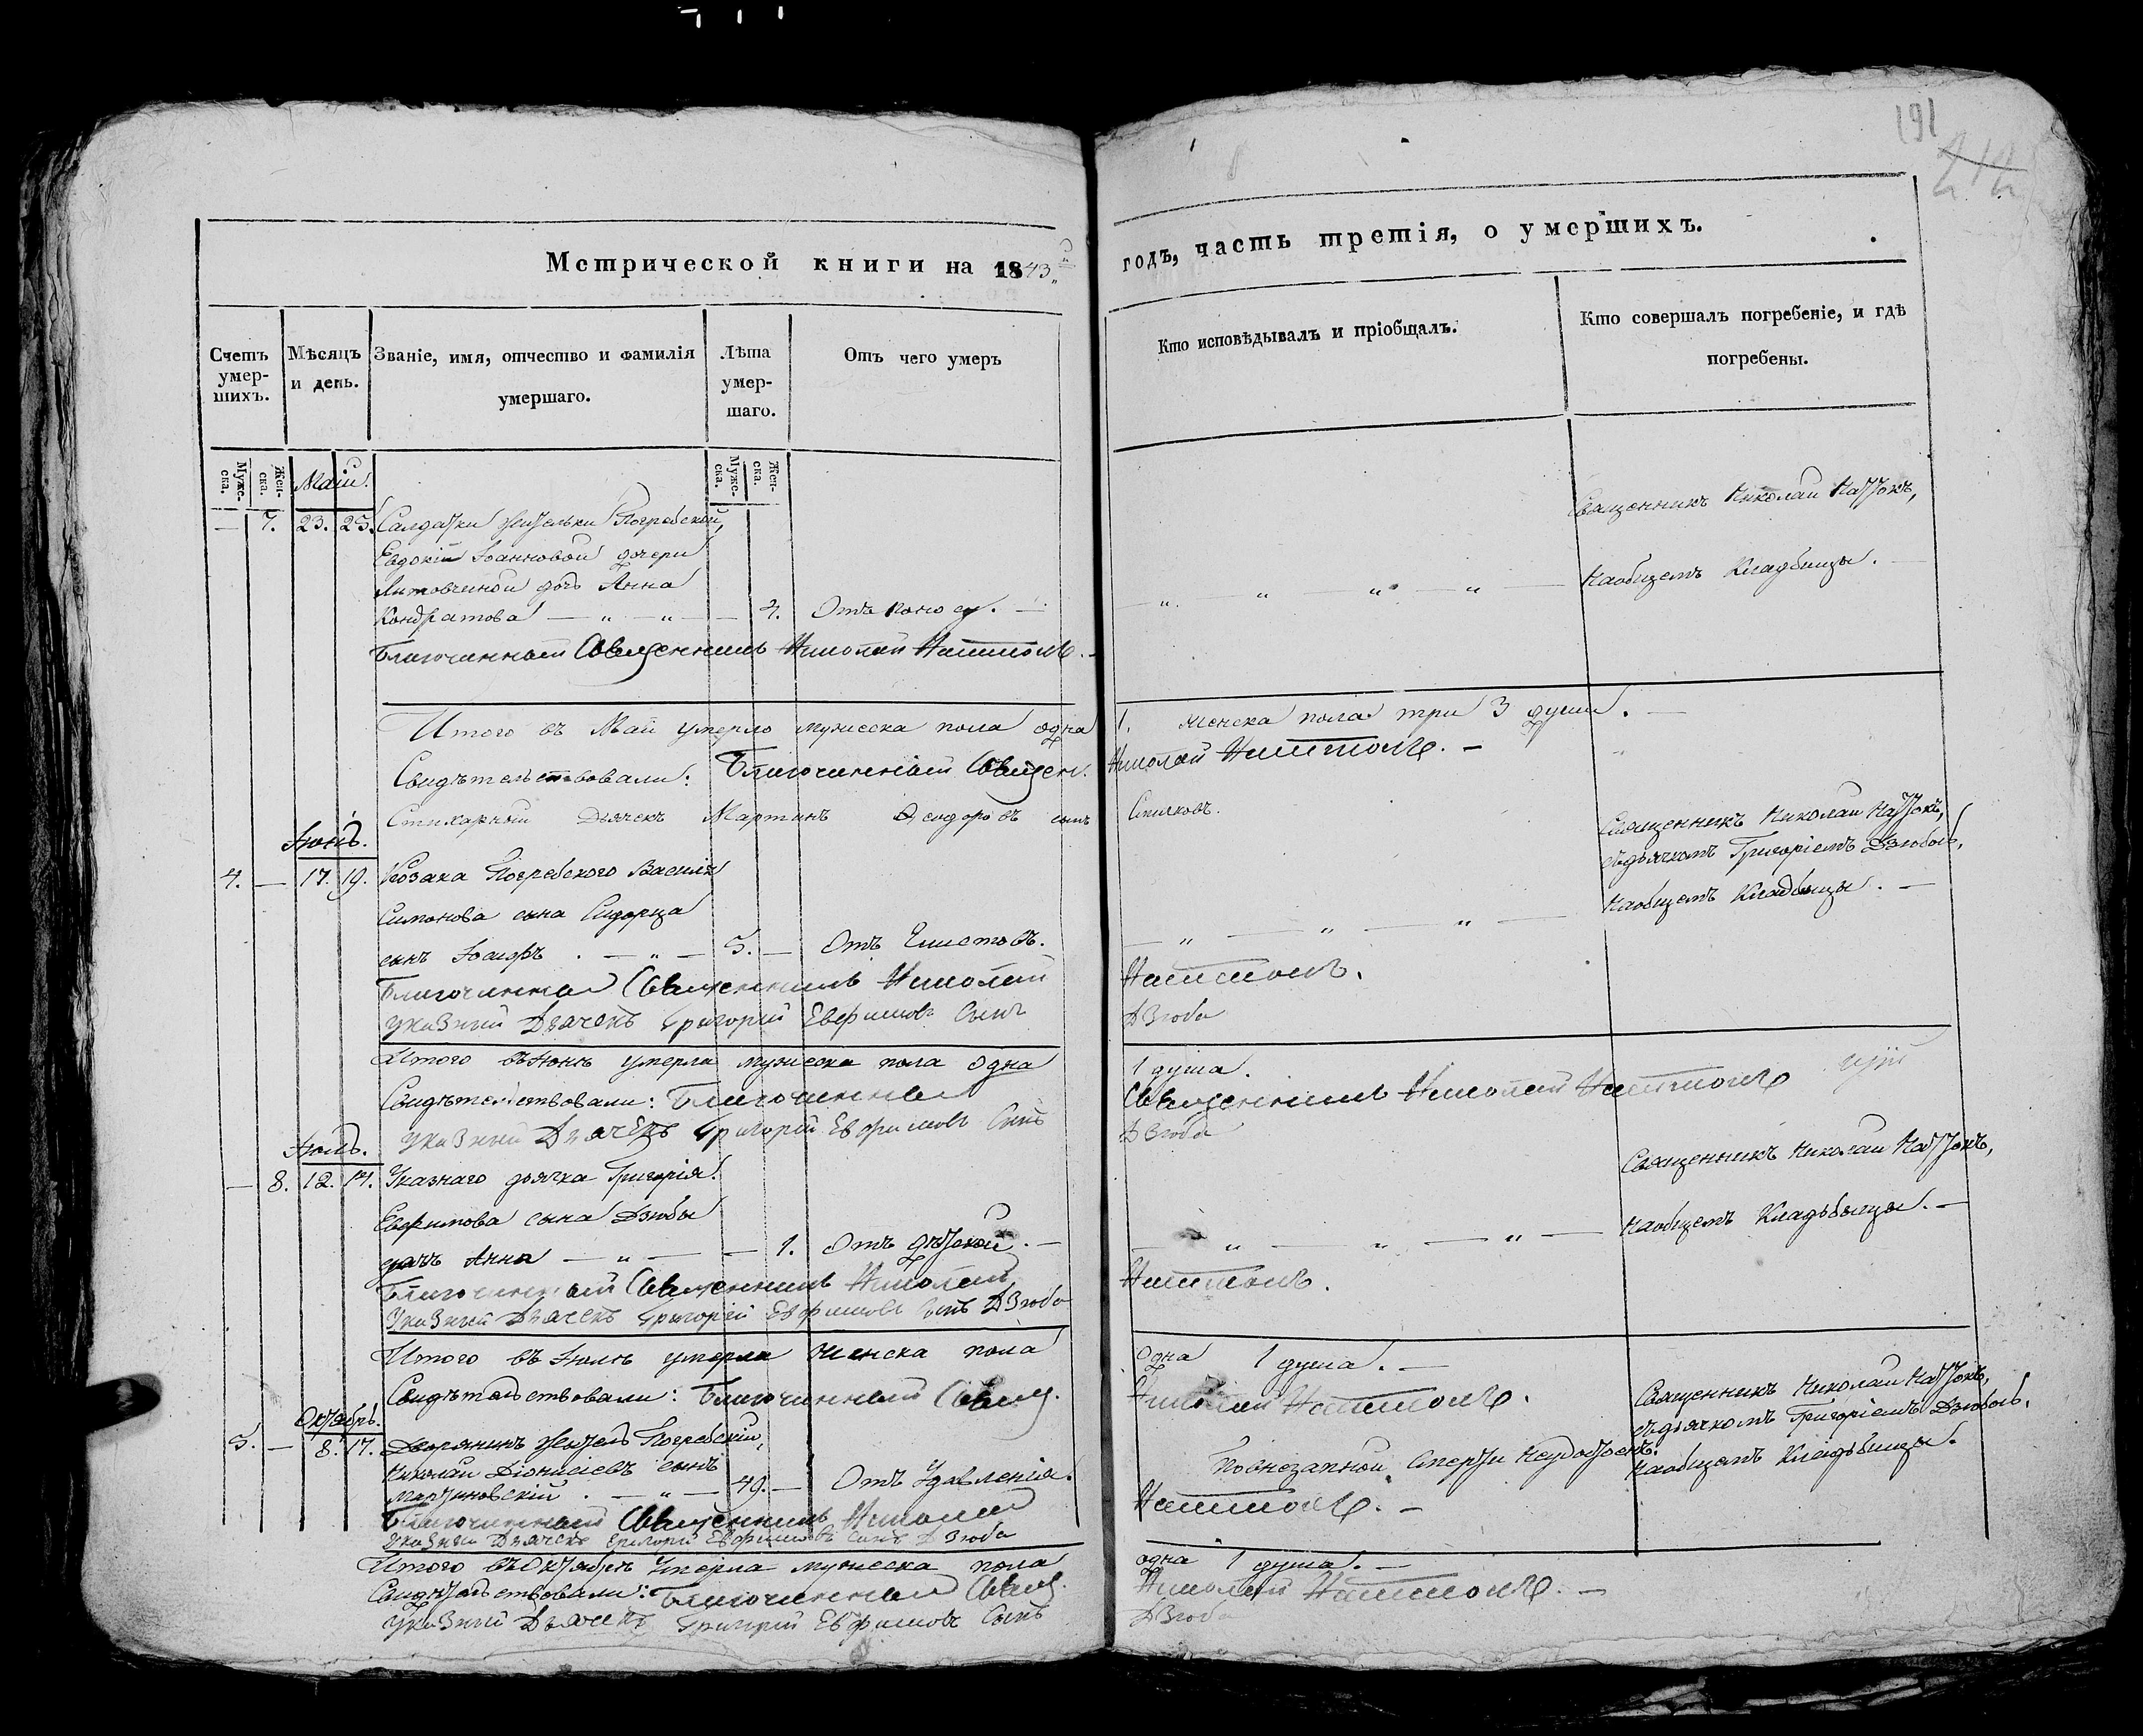 191
212
Метрической книги на 1843 годъ, часть третія, о умершихъ.
Счетъ умер-шихъ.
Мѣсяцъ и день.
Званіе, имя, отчество и фамилія умершаго.
Лѣта умер-шаго.
Отъ чего умеръ
Кто исповѣдывалъ и пріобщалъ.
Кто совершалъ погребеніе, и гдѣ погребены.
Муже-ска.
Жен-ска.
Муже-ска.
Жен-ска.
Маій.
— 7. 23. 25. Салдатки жительки Погребской,
Евдокіи Іоанновой дочери
дочь Анна
Кондратова — „ — „ — 4. Отъ поносу. —
Священникъ Николай
Наобщемъ Кладбищы. —
Благочинный Священникъ Николай
Итого въ Маи умерло мужеска пола одна 1. женска пола три 3 души. —
Свидѣтельствовали: Благочинный Священ. Николай
Стихарный Дьячекъ Мартинъ Ѳеодоровъ сынъ
Іюнь.
4. — 17. 19. Козака Погребского Василія
Симонова сына Сидорца
сынъ Іосифъ . — „ — 5. — Отъ Глистовъ.
Священникъ Николай
съдьячкомъ Григоріемъ Дзюбою,
Наобщемъ Кладбищы. —
Благочинный Священникъ Николай
Указный Дьячекъ Григорій Евфимовъ Сынъ Дзюба
Итого въ Іюнѣ умерла мужеска пола одна 1 душа.
Свидѣтельствовали: Благочинный Священникъ Николай
Указный Дьячекъ Григорій Евфимовъ Сынъ Дзюба
Іюль.
— 8. 12. 14. Указнаго дьячка Григорія
Евфимова сына Дзюбы
дочь Анна — „ — — 1. Отъ дѣтской. —
Священникъ Николай
Наобщемъ Кладьбищы. —
Благочинный Священникъ Николай
Указный Дьячекъ Григорій Евфимовъ Сынъ Дзюба
Итого въ Іюлѣ умерла женска пола одна 1 душа. —
Свидѣтельствовали: Благочинный Свящ. Николай
Октябрь.
5. — 8. 17. Дворянинъ житель Погребскій,
Николай Діонисіевъ сынъ
Мартиновскій . — „ — 49. — Отъ Удавленія.
Повнезапной Смерти Неудостоенъ.
Священникъ Николай
съдьячкомъ Григоріемъ Дзюбою.
Наобщемъ Кладьбищы.
Благочинный Священникъ Николай
Указный Дьячекъ Григорій Евфимовъ Сынъ Дзюба
Итого въ Октябрѣ Умерла мужеска пола одна 1 душа. —
Свидѣтельствовали: Благочинный Свящ. Николай
Указный Дьячекъ Григорій Евфимовъ Сынъ Дзюба